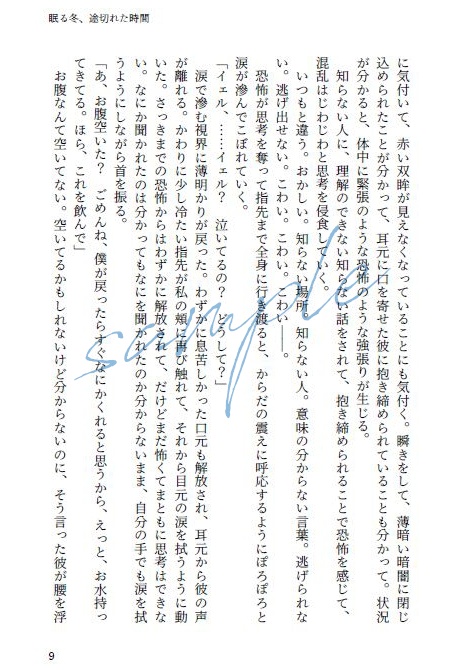 眠る冬、途切れた時間
に気付いて、赤い双眸が見えなくなっていることにも気付く。瞬きをして、薄暗い暗闇に閉じ
込められたことが分かって、耳元に口を寄せた彼に抱き締められていることも分かって。状況
が分かると、体中に緊張のような恐怖のような強張りが生じる。
知らない人に、理解のできない知らない話をされて、抱き締められることで恐怖を感じて、
混乱はじわじわと思考を侵食していく。
いつもと違う。おかしい。知らない場所、知らない人。意味の分からない言葉。逃げられな
い。逃げ出せない。こわい。こわい。こわい――。
恐怖が思考を奪って指先まで全身に行き渡ると、からだの震えに呼応するようにぽろぽろと
涙が滲んでこぼれていく。
「イェル、……イェル? 泣いてるの? どうして?」
涙で滲む視界に薄明かりが戻った。わずかに息苦しかった口元も解放され、耳元から彼の声
が離れる。かわりに少し冷たい指先が私の頬に再び触れて、それから目元の涙を拭うように動
いた。さっきまでの恐怖からはわずかに解放されて、だけどまだ怖くてまともに思考はできな
い。なにか聞かれたのは分かってもなにを聞かれたのか分からないまま、自分の手でも涙を拭
うようにしながら首を振る。
「あ、お腹空いた? ごめんね、僕が戻ったらすぐなにかくれると思うから、えっと、お水持っ
てきてる。ほら、これを飲んで」
お腹なんて空いてない。空いてるかもしれないけど分からないのに、そう言った彼が腰を浮
sample
9